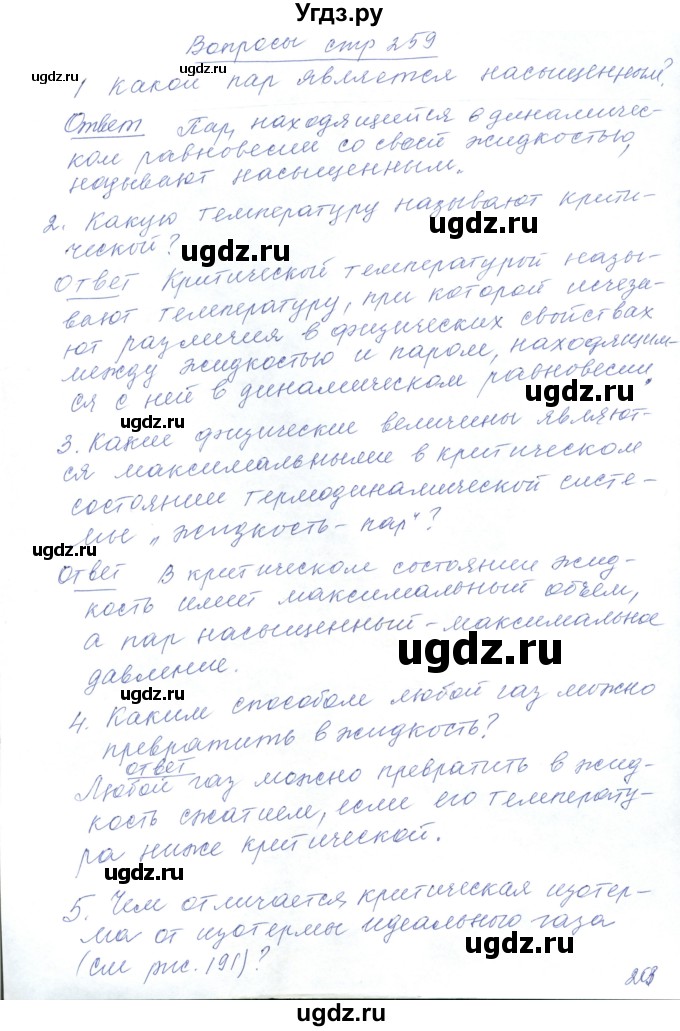 Угдз.ру
Вопросы стр 259
ugdz.ru
1 Какой пар является насыщенным?
Ответ Пар, находящийся в динамичес-
ком равновесии со своей жидкостью,
называют насыщенным.
2. Какую температуру называют крити-
ческой?
ugdz.ru ugdz.ru
Ответ Критической температурой назы-
вают температуру, при которой исчеза-
ют различия в физических свойствах
между жидкостью и паром, находящим-
ся с ней в динамическом равновесии.
ugdz.ru ugdz.ru
3. Какие физические величины являют-
ся максимальными в критическом
состоянии термодинамической систе-
мы „жидкость - пар"?
ugdz.ru
Ответ В критическом состоянии жид-
кость имеет максимальный объём,
а пар насыщенный - максимальное
давление.
ugdz.ru
ugdz.ru
4. Каким способом любой газ можно
превратить в жидкость?
ответ
Любой газ можно превратить в жид-
кость сжатием, если его температу-
ра ниже критической.
ugdz.ru
ugdz.ru
5. Чем отличается критическая изотер-
ма от изотермы идеального газа
(см рис. 191)?
ugdz.ru
ugdz.ru